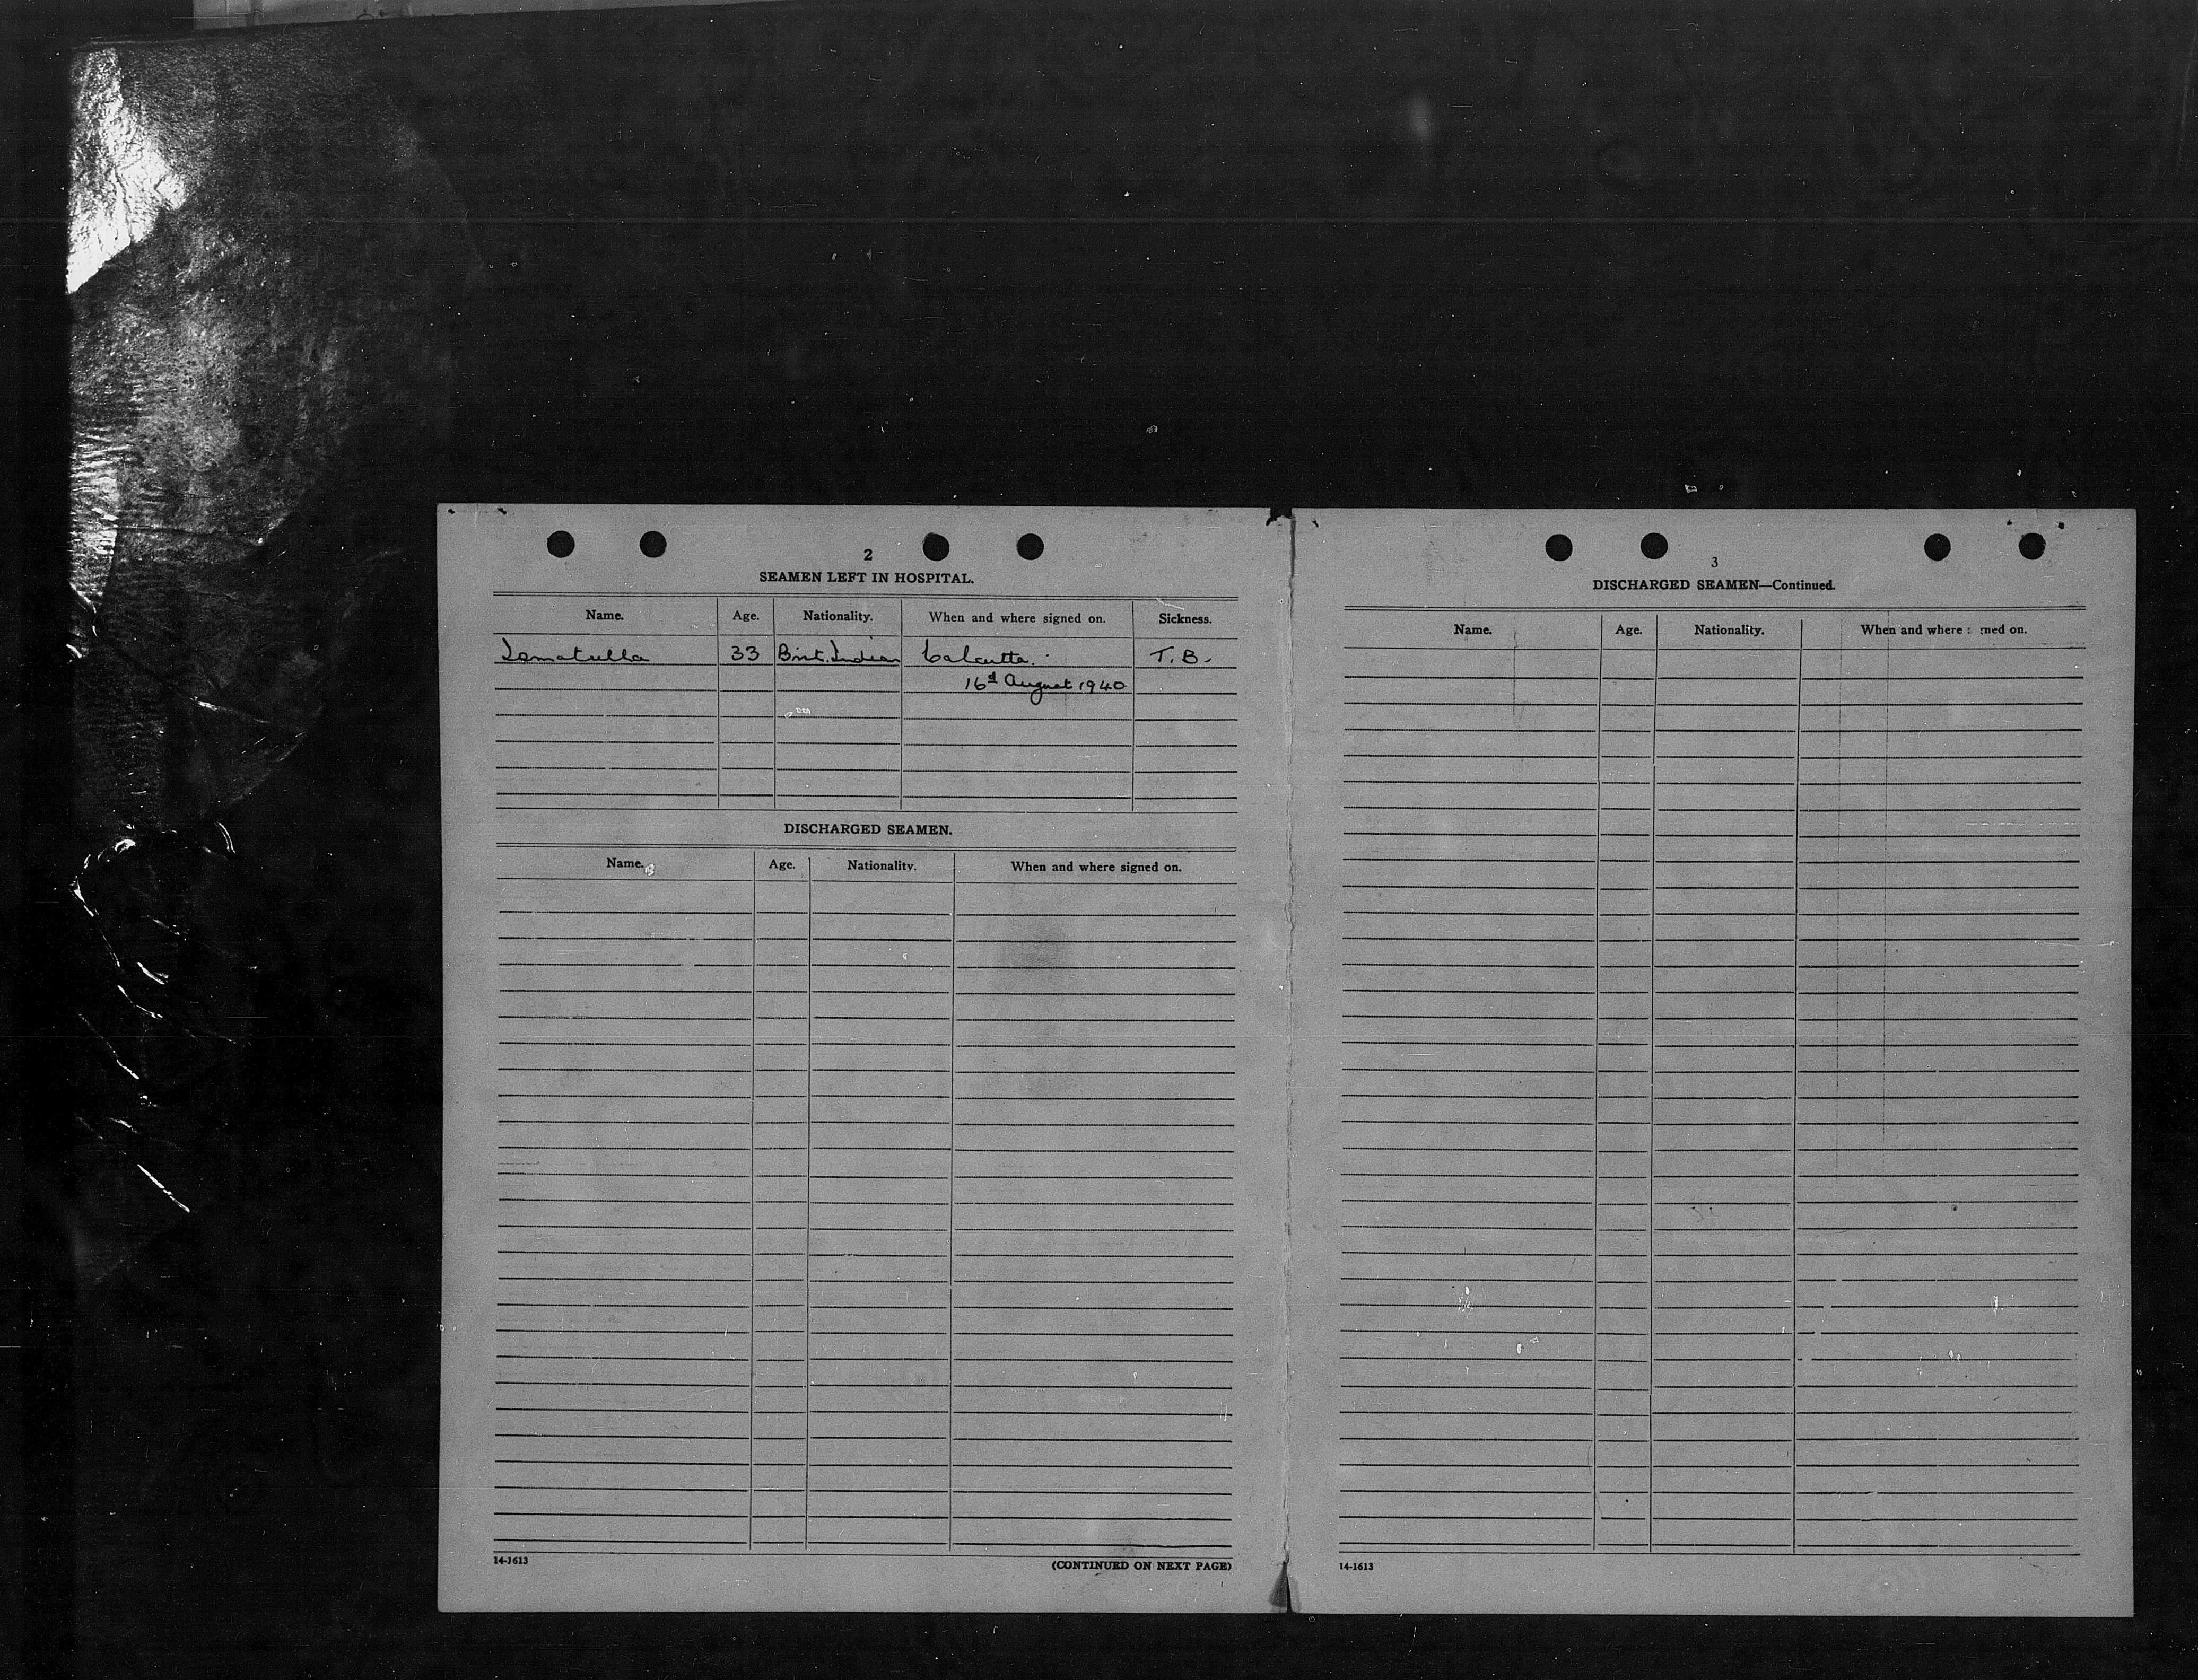 2
SEAMEN LEFT IN HOSPITAL.
Name. Age. Nationality. When and where signed on. Sickness.
33 Brit. Indian Calcutta. T.B.
16th August 1940
DISCHARGED SEAMEN.
Name. Age. Nationality. When and where signed on.
14-1613 (CONTINUED ON NEXT PAGE)
3
DISCHARGED SEAMEN—Continued.
Name. Age. Nationality. When and where signed on.
14-1613